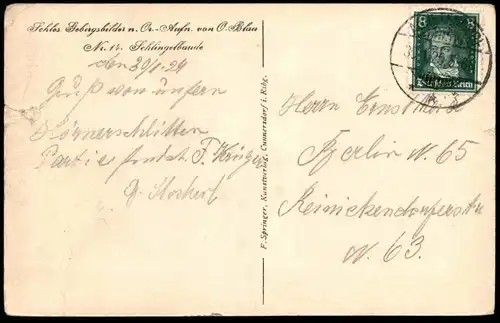 Schles. Gebirgsbilder n. Or.-Aufn. von O. Blau
Nr. 14. Schlingelbaude
den 30/1. 29
Gruß von unsern
Hörnerschlitten
Partie sendet F. Krüger
F. Springer, Kunstverlag, Cunnersdorf i. Rsgb.
8 8
Deutsches Reich
Herrn Ernst
Berlin N. 65
Reinickendorferstr
N. 63.